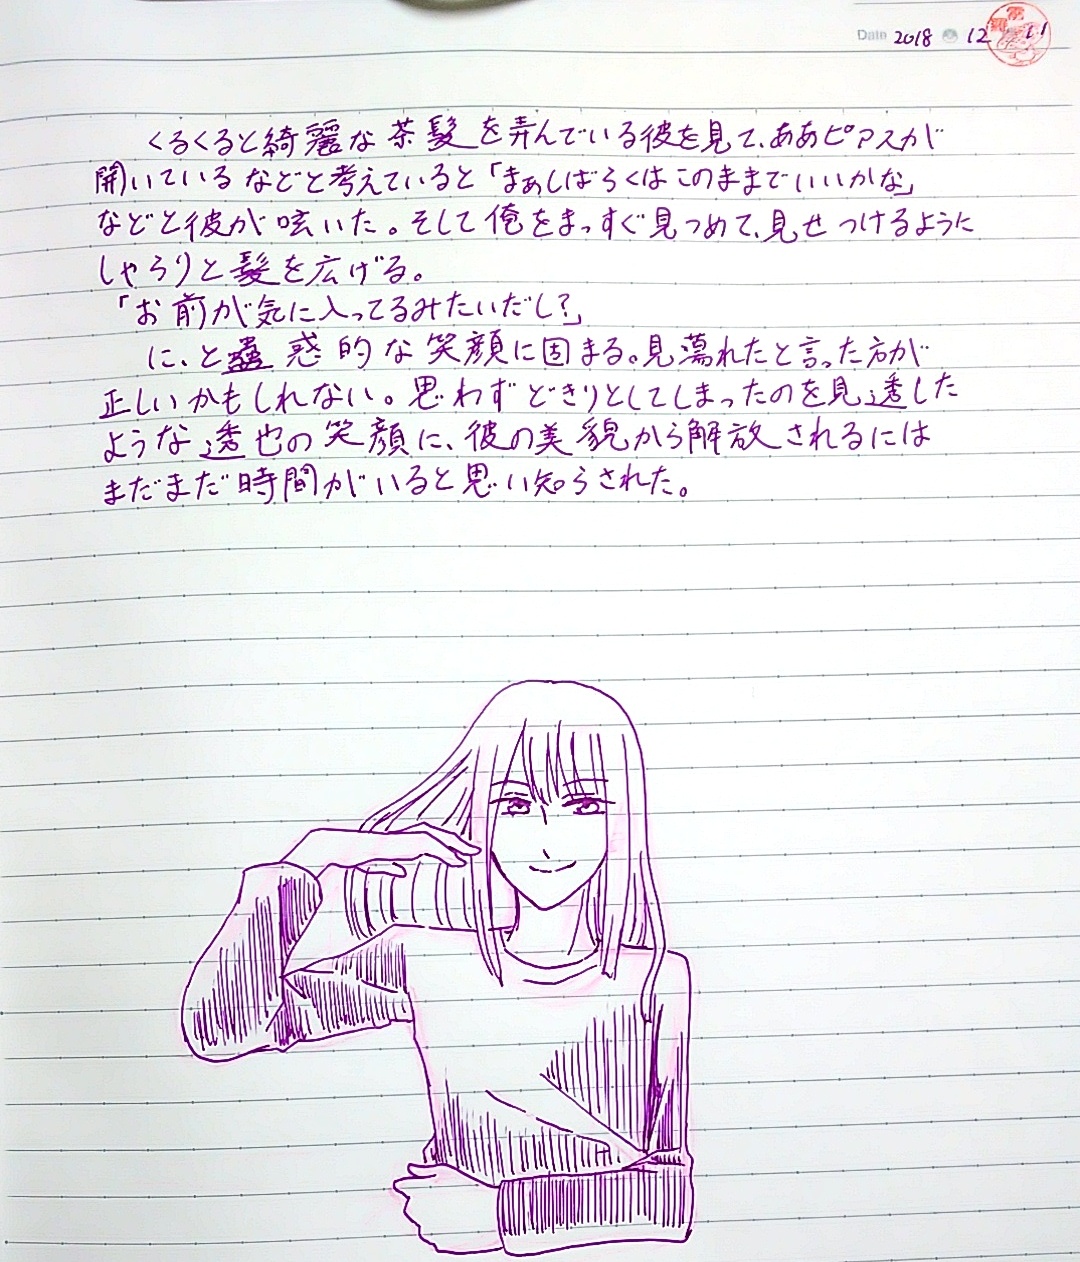 Date 2018 12 11
くるくると綺麗な茶髪を弄んでいる彼を見て、ああピアスが
開いているなどと考えていると「まぁしばらくはこのままでいいかな」
などと彼が呟いた。そして俺をまっすぐ見つめて、見せつけるように
しゃらりと髪を広げる。
「お前が気に入ってるみたいだし?」
に、と蠱惑的な笑顔に固まる。見蕩れたと言った方が
正しいかもしれない。思わずどきりとしてしまったのを見透した
ような透也の笑顔に、彼の美貌から解放されるには
まだまだ時間がいると思い知らされた。